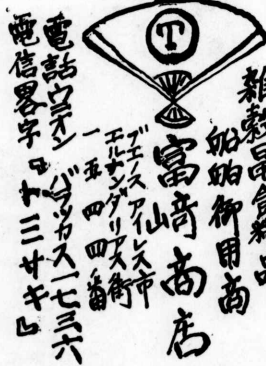 Ⓣ
雑穀
船舶御用商
富崎商店
ブエノスアイレス市
エルナンダリアス街
一五四四番
電話ウニオン バラッカス一七三六
電信畧字『トミサキ』